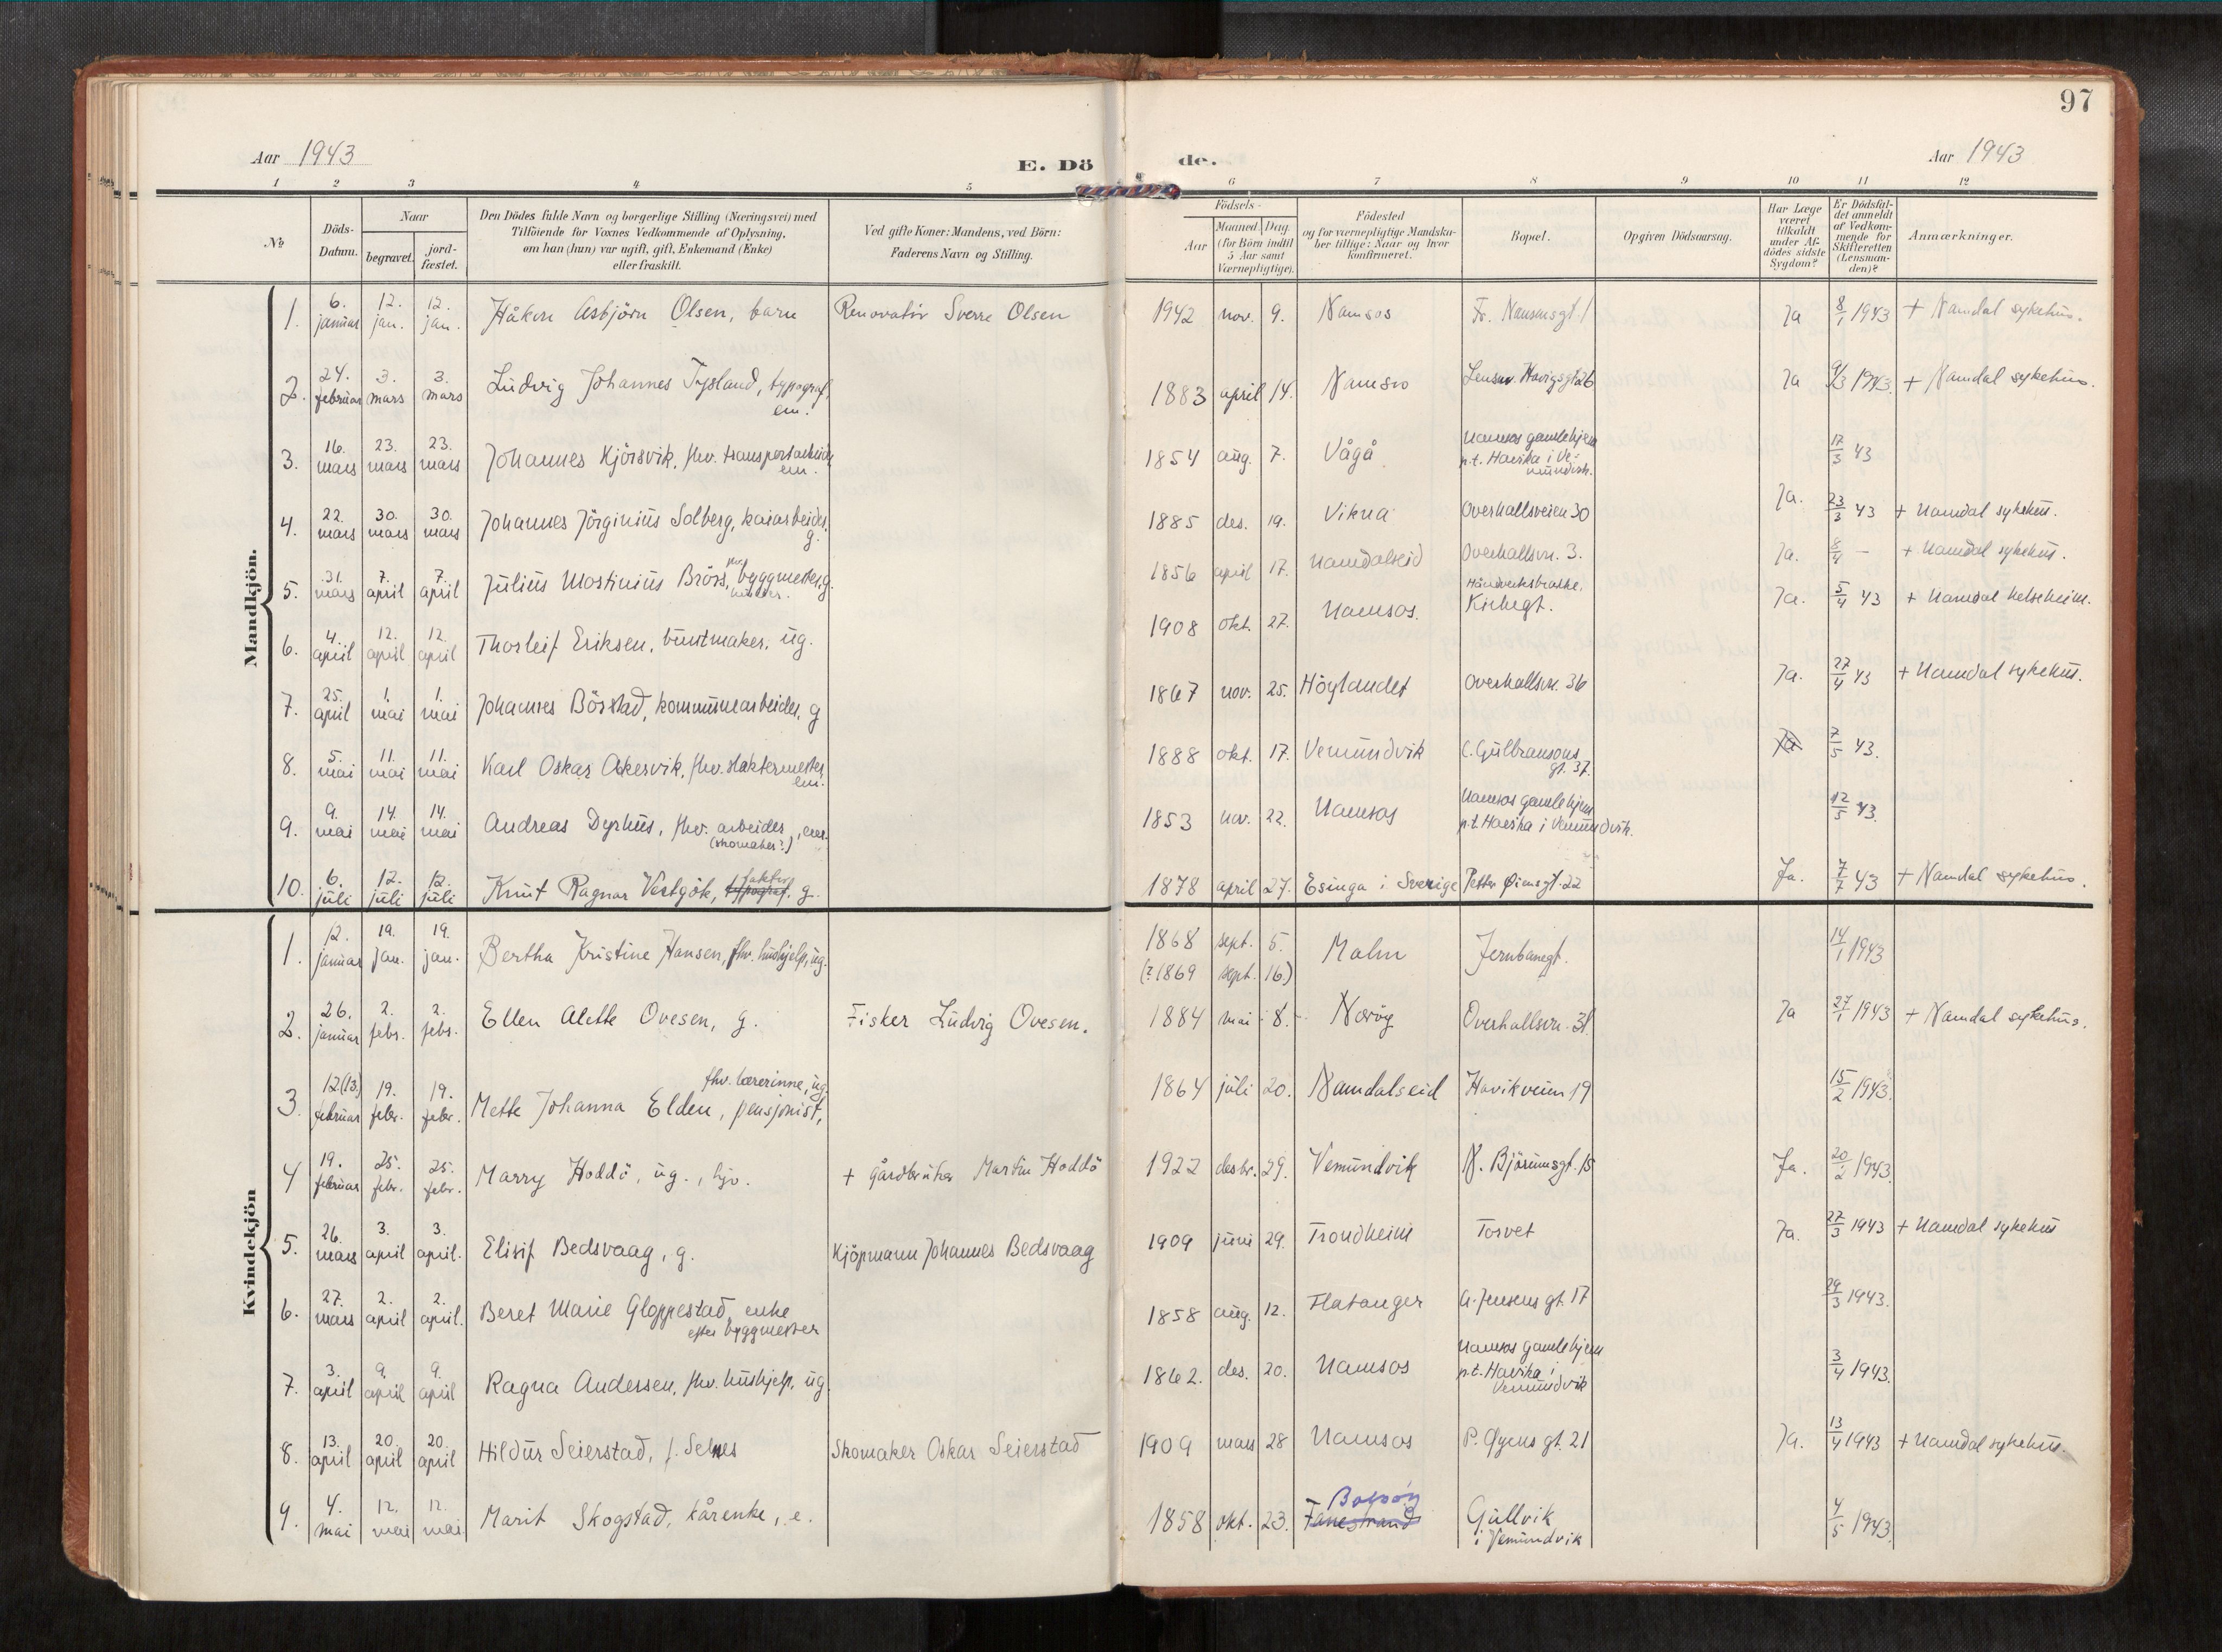 97
Aar 1943
E. Dö
de.
Aar 1943
1 2 3 4 5 6 7 8 9 10 11 12
№
Döds-
Datum.
Naar
begravet.
jord-
fæstet.
Den Dödes fulde Navn og borgerlige Stilling (Næringsvei) med
Tilföiende for Voxnes Vedkommende af Oplysning,
om han (hun) var ugift, gift, Enkemand (Enke)
eller fraskilt.
Ved gifte Koner: Mandens, ved Börn:
Faderens Navn og Stilling.
Födsels-
Aar
Maaned. Dag.
(for Börn indtil
5 Aar samt
Værnepligtige).
Födested
og for værnepligtige Mandska-
ber tillige: Naar og hvor
konfirmeret.
Bopæl.
Opgiven Dödsaarsag.
Har Læge
været
tilkaldt
under Af-
dödes sidste
Sygdom?
Er Dödsfal-
det anmeldt
af Vedkom-
mende for
Skifteretten
(Lensman-
den)?
Anmærkninger.
Mandkjön.
1. 6. januar 12. jan. 12. jan. Håkon Asbjörn Olsen, barn Renovatör Sverre Olsen 1942 nov. 9. Namsos Fr. Nansensgt. 1 Ja 8/1 1943 + Namdal sykehus.
2. 24. februar 3. mars 3. mars Ludvig Johannes Tysland, typograf, em. 1883 april 14. Namsos Lensm. Havigsgt 26 Ja 9/3 1943. + Namdal sykehus.
3. 16. mars 23. mars 23. mars Johannes Kjörsvik, fhv. transportarbeider em. 1854 aug. 7. Vågå Namsos gamlehjem p.t. Havika i Ve-mundvik. 17/3 43
4. 22. mars 30. mars 30. mars Johannes Jörginius Solberg, kaiarbeider, g. 1885 des. 19. Vikna Overhallsveien 30 Ja. 23/3 43 + Namdal sykehus.
5. 31. mars 7. april 7. april Julius Mostinius Bröss, fhv. byggmester, g. 1856 april 17. Namdalseid Overhallsvn. 3. Ja. 8/4 — + Namdal sykehus.
6. 4. april 12. april 12. april Thorleif Eriksen, buntmaker, ug. 1908 okt. 27. Namsos. Kirkegt. Ja. 5/4 43 + Namdal helseheim.
7. 25. april 1. mai 1. mai Johannes Börstad, kommunearbeider, g 1867 nov. 25. Höylandet Overhallsvn. 36 Ja. 27/4 43 + Namdal sykehus.
8. 5. mai 11. mai 11. mai Karl Oskar Akervik, fhv. slaktermester em. 1888 okt. 17. Vemundvik C. Gulbransons gt. 37. Ja 7/5 43.
9. 9. mai 14. mai 14. mai Andreas Dyrhus, fhv. arbeider, em. (skomaker?) 1853 nov. 22. Namsos Namsos gamlehjem p.t. Havika i Vemundvik. 12/5 43.
10. 6. juli 12. juli 12. juli Knut Ragnar Vestgök, typograf. faktor g. 1878 april 27. Esinga i Sverige Petter Øiensgt. 22 Ja. 7/7 43 + Namdal sykehus.
Kvindekjön
1. 12. januar 19. jan. 19. jan. Bertha Kristine Hansen, fhv. hushjelp, ug. 1868 sept. 5. (? 1869 sept. 16.) Malm Jernbanegt. 14/1 1943
2. 26. januar 2. febr. 2. febr. Ellen Alette Ovesen, g. Fisker Ludvig Ovesen. 1884 mai 8. Næröy Overhallsvn. 31. Ja 27/1 1943 + Namdal sykehus.
3. 12.(13.) februar 19. febr. 19. febr. Mette Johanna Elden, pensjonist, fhv. lærerinne, ug. 1864 juli 20. Namdalseid Havikveien 19 15/2 1943.
4 19. februar 25. febr. 25. febr. Marry Hoddö, ug., hjv. + gårdbruker Martin Hoddö 1922 desbr. 29. Vemundvik N. Björumsgt. 15 Ja. 20/2 1943
5. 26. mars 3. april 3. april. Elisif Bedsvaag, g. Kjöpmann Johannes Bedsvaag 1909 juni 29. Trondheim Torvet Ja. 27/3 1943 + Namdal sykehus
6. 27. mars 2. april 2. april. Beret Marie Gloppestad, enke efter byggmester 1858 aug. 12. Flatanger A. Jensens gt. 17 29/3 1943.
7. 3. april 9. april 9. april Ragna Andersen, fhv. hushjelp, ug. 1862. des. 20. Namsos Namsos gamlehjem p.t. Havika i Vemundvik 3/4 1943.
8. 13. april 20. april 20. april Hildur Seierstad, f. Selnes Skomaker Oskar Seierstad 1909 mars 28 Namsos P. Øyens gt. 21 Ja. 13/4 1943 + Namdal sykehus.
9. 4. mai 12. mai 12. mai Marit Skogstad, kårenke, e. 1858 okt. 23. Fanestrand Bolsöy Gullvik i Vemundvik 4/5 1943.